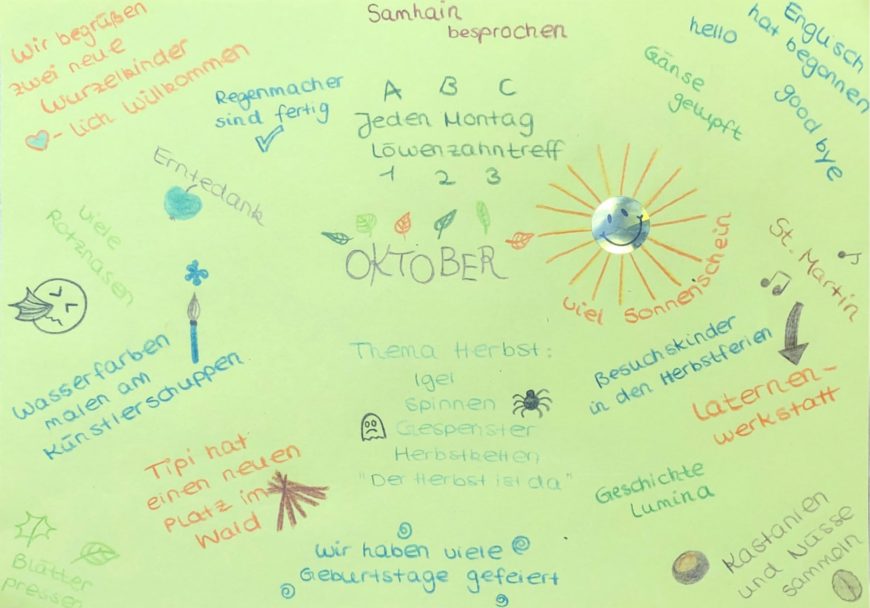 Samhain
besprochen
Wir begrüßen
zwei neue
Wurzelkinder
- lich willkommen
Regenmacher
sind fertig
A B C
Jeden Montag
Löwenzahntreff
1 2 3
Gänse
gerupft
hello
Englisch
hat begonnen
good bye
Erntedank
viele
Rotznasen
OKTOBER
viel Sonnenschein
St. Martin
Wasserfarben
malen am
Künstlerschuppen
Thema Herbst:
Igel
Spinnen
Gespenster
Herbstketten
"Der Herbst ist da"
Besuchskinder
in den Herbstferien
Laternen-
werkstatt
Tipi hat
einen neuen
Platz im
Wald
Geschichte
Lumina
Blätter
pressen
Wir haben viele
Geburtstage gefeiert
Kastanien
und Nüsse
sammeln